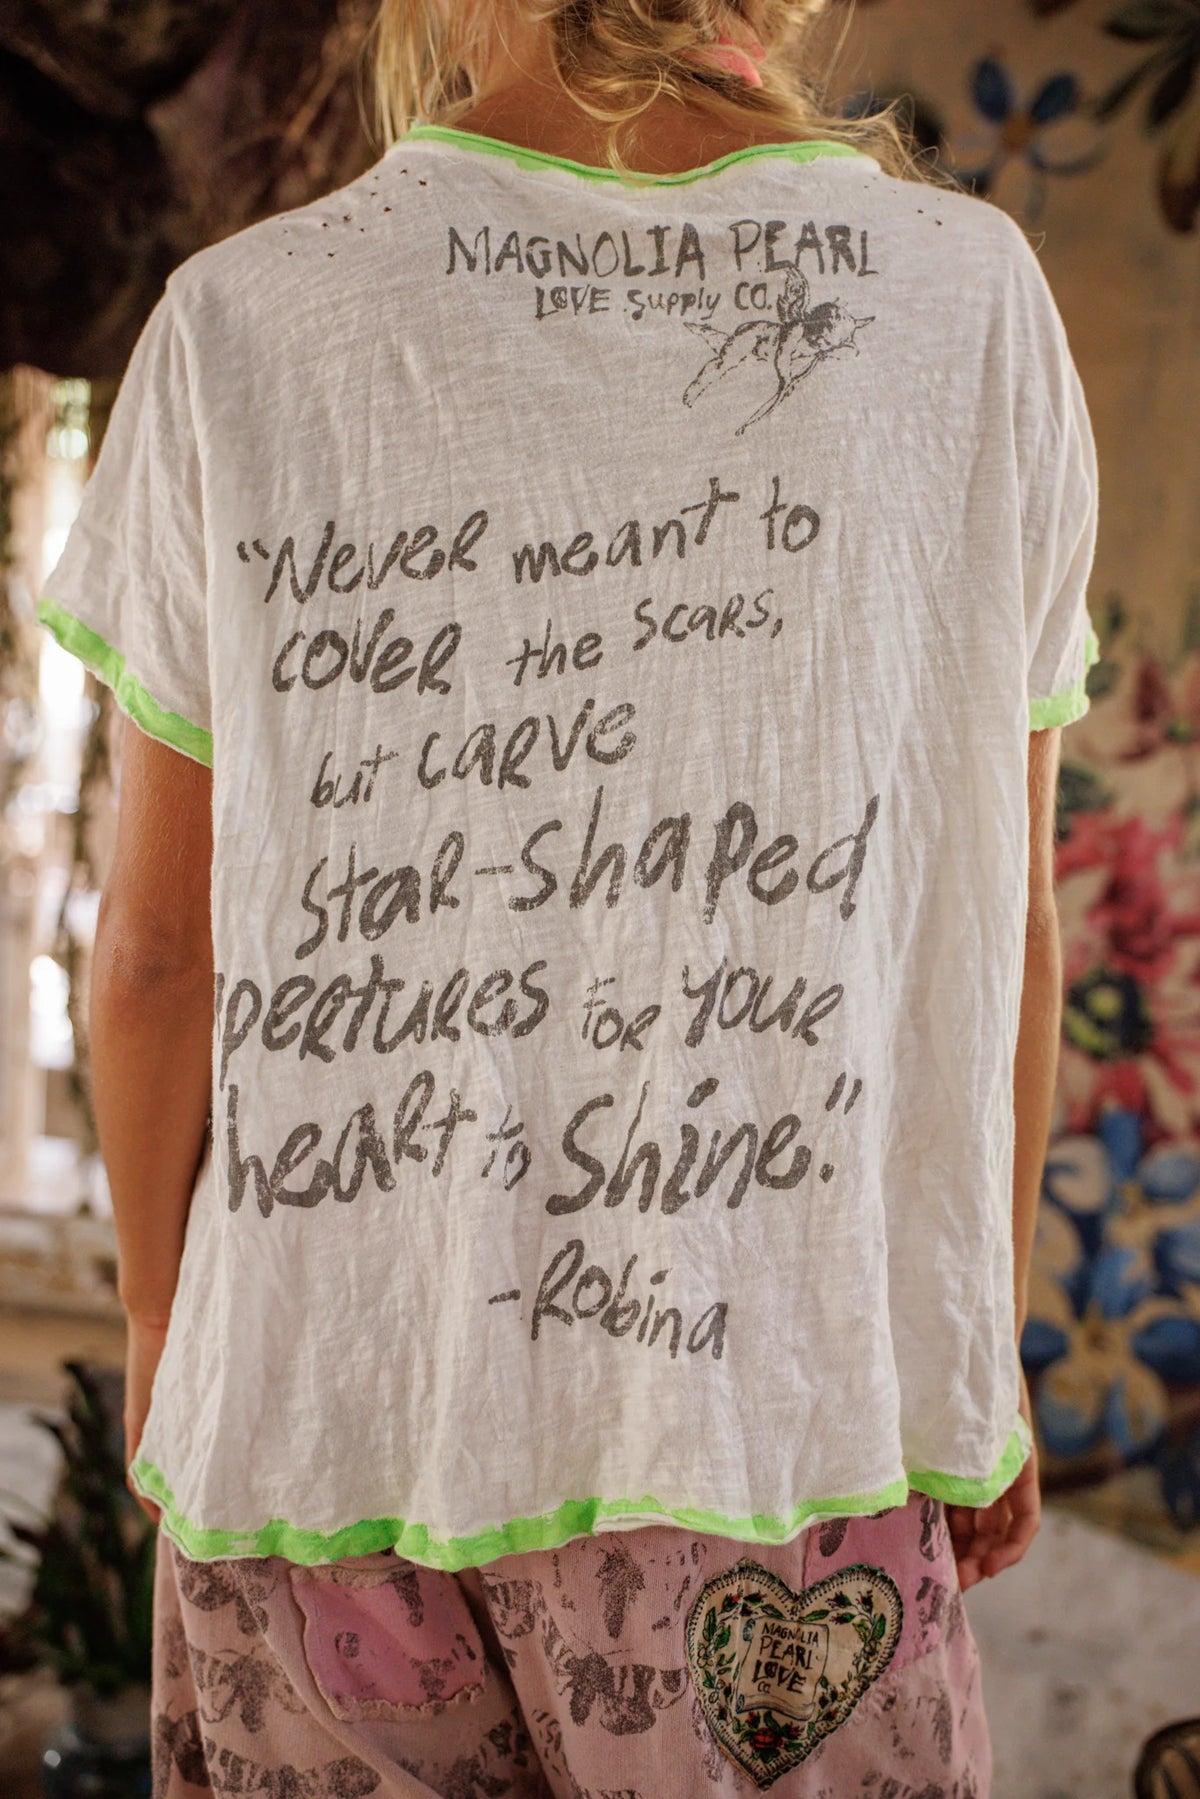 MAGNOLIA PEARL
LOVE Supply CO.
"Never meant to
cover the scars,
but carve
star-shaped
pertures for your
heart to shine."
-Robina
MAGNOLIA
PEARL
LOVE
Co